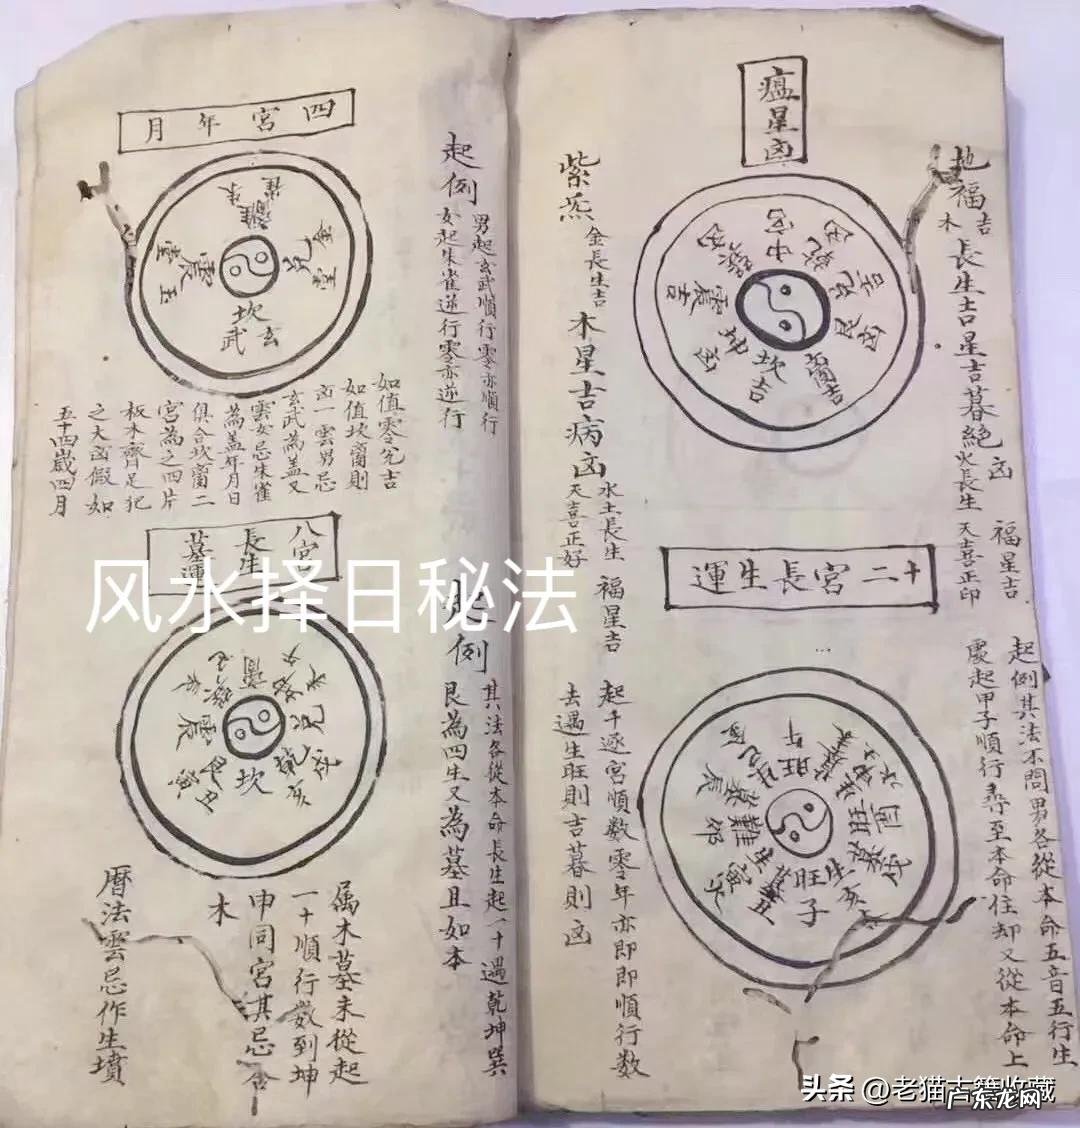 瘟星凶
地福吉
木長生吉星吉暮絕凶
火長生
天喜正印
福星吉
紫炁
金長生吉
木星吉病凶
水土長生
天喜正好
福星吉
中宮
乾
兌
坎吉
坤凶
震吉
巽
十二宮長生運
起例其法不問男各從本命五音五行生
處起甲子順行尋至本命住却又從本命上
起千逐宮順数零年亦即即順行数
去遇生旺則吉暮則凶
午
旺
巳
辰
卯
寅
丑
子
旺
亥
四宮年月
起例
男起玄武順行零亦順行
女起朱雀逆行零亦逆行
朱雀
離
兌
金堂
坎
玄武
震
玉堂
如值零兊吉
如值坎离則
凶一雲男忌
玄武為盖又
雲女忌朱雀
為盖年月日
俱合坎离二
宮為之四片
板木齊足犯
之大凶假如
五十四歲四月
八宮
長生
墓運
例
其法各從本命長生起一十遇乾坤巽
艮為四生又為墓且如本
离
兌
乾
亥
坎
艮
丑
寅
震
属木墓未從起
一十順行数到坤
申同宮其忌合
木
曆法雲忌作生墳
风水择日秘法
头条 @老猫古籍收藏
广东龙网